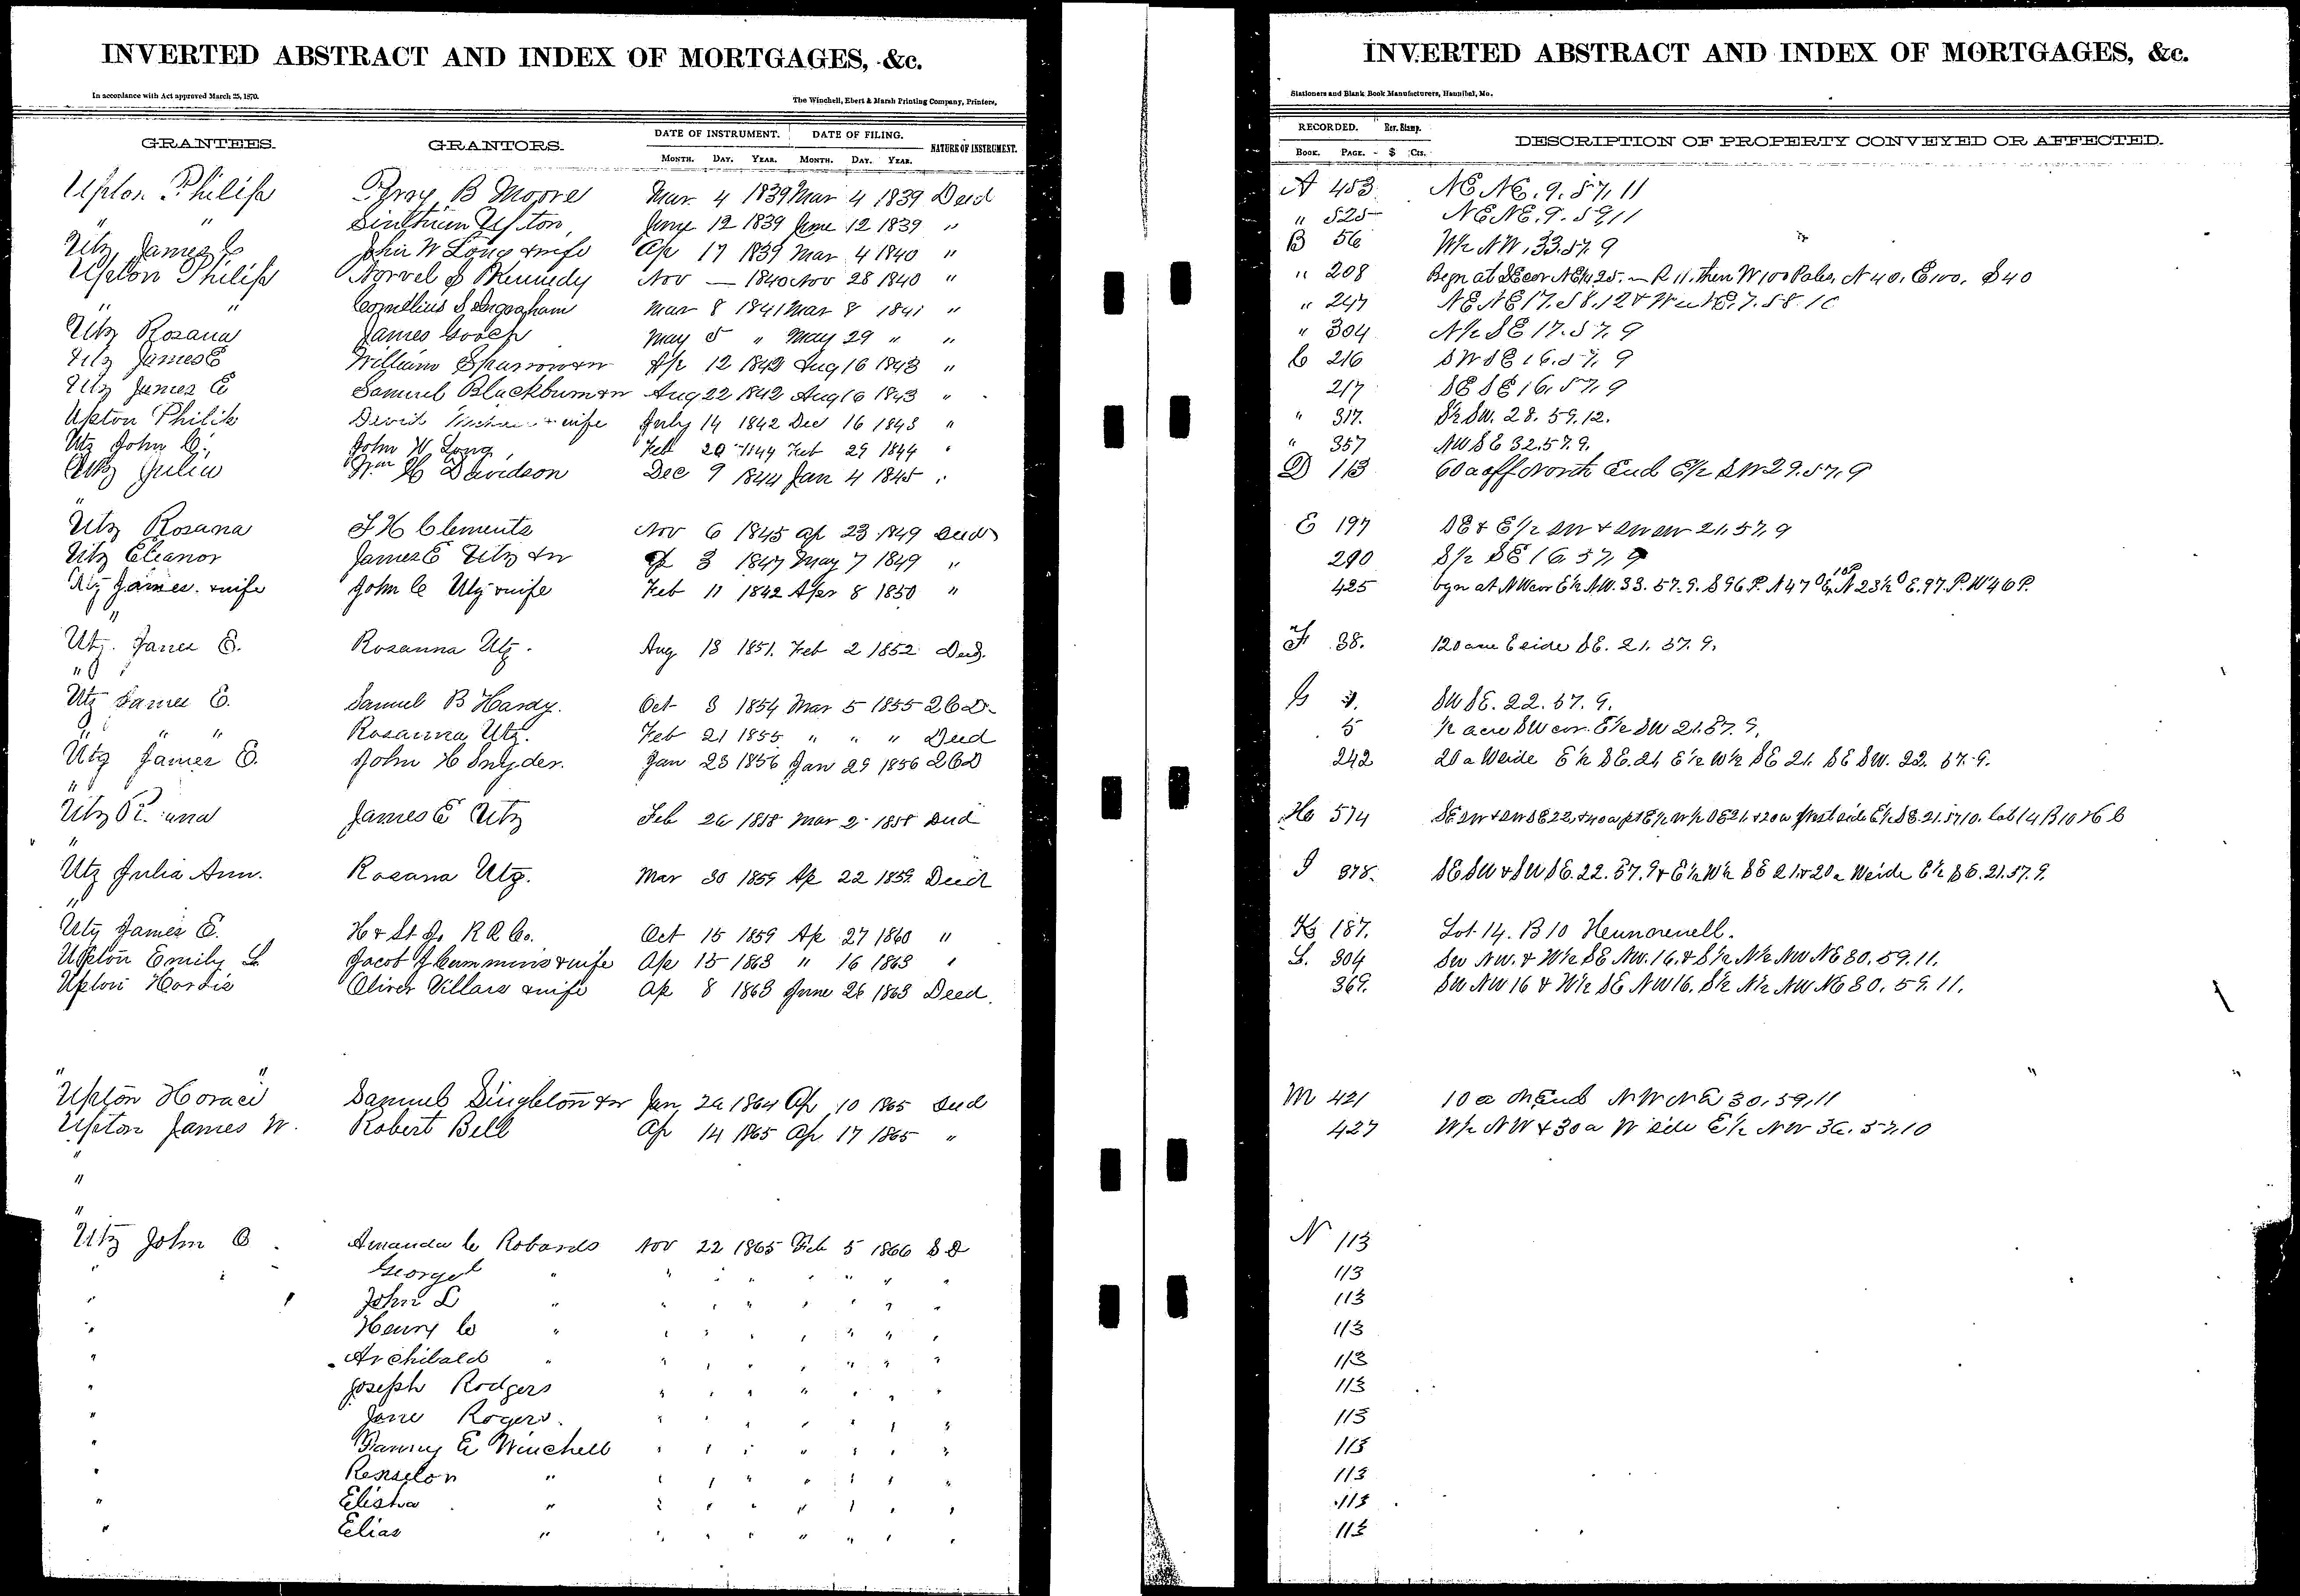 INVERTED ABSTRACT AND INDEX OF MORTGAGES, &c.
In accordance with Act approved March 25, 1870.
The Winchell, Ebert & Marsh Printing Company, Printers,
GRANTEES. GRANTORS. DATE OF INSTRUMENT. DATE OF FILING. NATURE OF INSTRUMENT.
MONTH. DAY. YEAR. MONTH. DAY. YEAR.
INVERTED ABSTRACT AND INDEX OF MORTGAGES, &c.
Stationers and Blank Book Manufacturers, Hannibal, Mo.
RECORDED. Rev. Stamp. DESCRIPTION OF PROPERTY CONVEYED OR AFFECTED.
BOOK. PAGE. $ Cts.
Upton Philip B Moore Mar 4 1839 Mar 4 1839 Deed A 453 NE NE. 9. 57. 11
" " Upton, June 12 1839 June 12 1839 " " 525 NE NE. 9. 59 11
Utz James C John W Long & wife Ap 17 1839 Mar 4 1840 " B 56 W½ NW. 33. 57. 9
Upton Philip Norvel Kennedy Nov — 1840 Nov 28 1840 " " 208 Begn at SE cor NE¼ 25. — R 11. then W 100 Poles, N 40. E 100. S 40
" " Cornelius S Mar 8 1841 Mar 8 1841 " " 247 NE NE 17. 58. 12 & NE. 7. 58. 10
Utz Rosana James Gooch May 5 " May 29 " " " 304 N½ SE 17. 57. 9
Utz James E William Sparrow & w Ap 12 1843 Aug 16 1843 " C 216 SW SE 16. 57. 9
Utz James E Samuel Blackburn & w Aug 22 1842 Aug 16 1843 " 217 SE SE 16. 57. 9
Upton Philip David & wife July 14 1842 Dec 16 1843 " " 317. S½ SW. 28. 59. 12.
Utz John C. John W Long, Feb 20 1844 Feb 29 1844 " " 357 NW SE 32. 57. 9.
Utz Julia Wm H Davidson Dec 9 1844 Jan 4 1845 " D 113 60 a off North End E½ SW 29. 57. 9
"
Utz Rosana J H Clements Nov 6 1845 Ap 23 1849 Deed E 197 SE & E½ SW & SW SW 21. 57. 9
Utz Eleanor James E Utz & w Ap 3 1847 May 7 1849 " 290 S½ SE 16 57. 9
Utz James. & wife John C Utz & wife Feb 11 1842 Apr 8 1850 " 425 bgn at NW cor E½ NW. 33. 57. 9. S 96 P. N 47° E 18P N 23½° E. 97. P. W 46 P.
"
Utz. James E. Rosanna Utz. Aug 13 1851. Feb 2 1852 Deed. F 38. 120 acre E side SE. 21. 57. 9.
"
Utz James E. Samuel B Hardy. Oct 3 1854 Mar 5 1855 2 C D. G SW SE. 22. 57. 9.
" " " Rosanna Utz. Feb 21 1855 " " " Deed 5 ½ acre SW cor. E½ SW 21. 57. 9.
Utz James E. John H Snyder. Jan 23 1856 Jan 29 1856 2 C D 242 20 a W side E½ SE. 21 E½ W½ SE 21. SE SW. 22. 57. 9.
"
Utz James E Utz Feb 26 1858 Mar 2 1858 Deed H 574 SE SW & SW SE 22, & 40 a pt E½ W½ SE 21. & 20 a West side E½ SE. 21. 57 10. Lot 14 B 10
"
Utz Julia Ann. Rosana Utz. Mar 30 1859 Ap 22 1859. Deed I 378. SE SW & SW SE. 22. 57. 9 & E½ W½ SE 21. & 20 a W side E½ SE. 21. 57. 9.
"
Utz James E. H & St Jo R R Co. Oct 15 1859 Ap 27 1860 " K 187. Lot 14. B 10 Hunnewell.
Upton Emily L. Jacob J Cummins & wife Ap 15 1863 " 16 1863 " L. 304 SW NW. & W½ SE NW. 16. & S½ N½ NW NE 30. 59. 11.
Upton Oliver Villars & wife Ap 8 1863 June 26 1863 Deed. 369. SW NW 16 & W½ SE NW 16. S½ N½ NW NE 30. 59. 11.
" "
Upton Horace Samuel Singleton & w Jan 26 1864 Ap 10 1865 Deed M 421 10 a N End NW NE 30. 59. 11
Upton James W. Robert Bell Ap 14 1865 Ap 17 1865 " 427 W½ NW & 30 a W side E½ NW 36. 57. 10
"
"
"
Utz John C. Amanda C Robards Nov 22 1865 Feb 5 1866 S D N 113
" " George " " " " " " " " 113
" John L " " " " " " " " 113
" Henry C " " " " " " " " 113
" Archibald " " " " " " " " 113
" Joseph Rodgers " " " " " " " 113
" Jane Rogers. " " " " " " " 113
" Fanny E Winchell " " " " " " " 113
" " " " " " " " " 113
" Elisha " " " " " " " " 113
" Elias " " " " " " " " 113